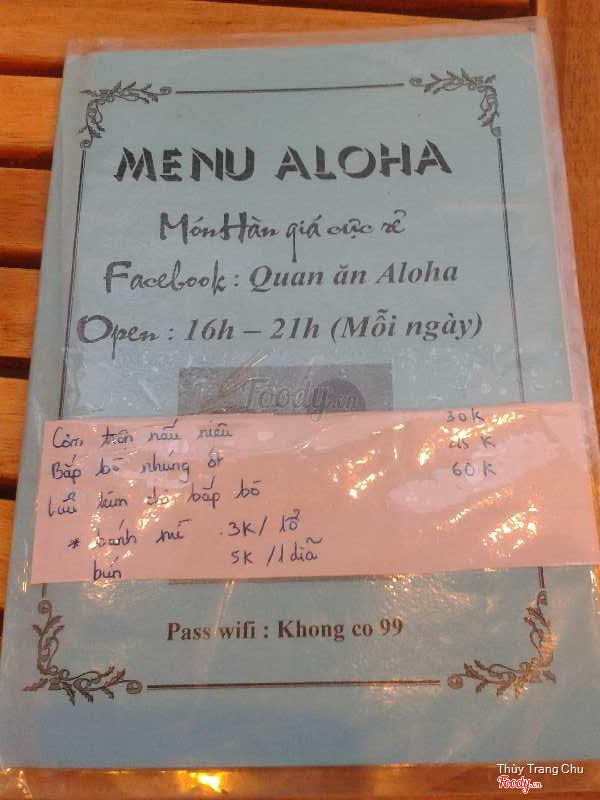 MENU ALOHA
Món Hàn giá cực rẻ
Facebook : Quan ăn Aloha
Open : 16h – 21h (Mỗi ngày)
Foody.vn
Cơm trộn nấu niêu 30K
Bắp bò nhúng ớt 45K
Lẩu kim chi bắp bò 60K
* bánh mì 3K/ 1 ổ
bún 5K /1 dĩa
Pass wifi : Khong co 99
Thùy Trang Chu
Foody.vn